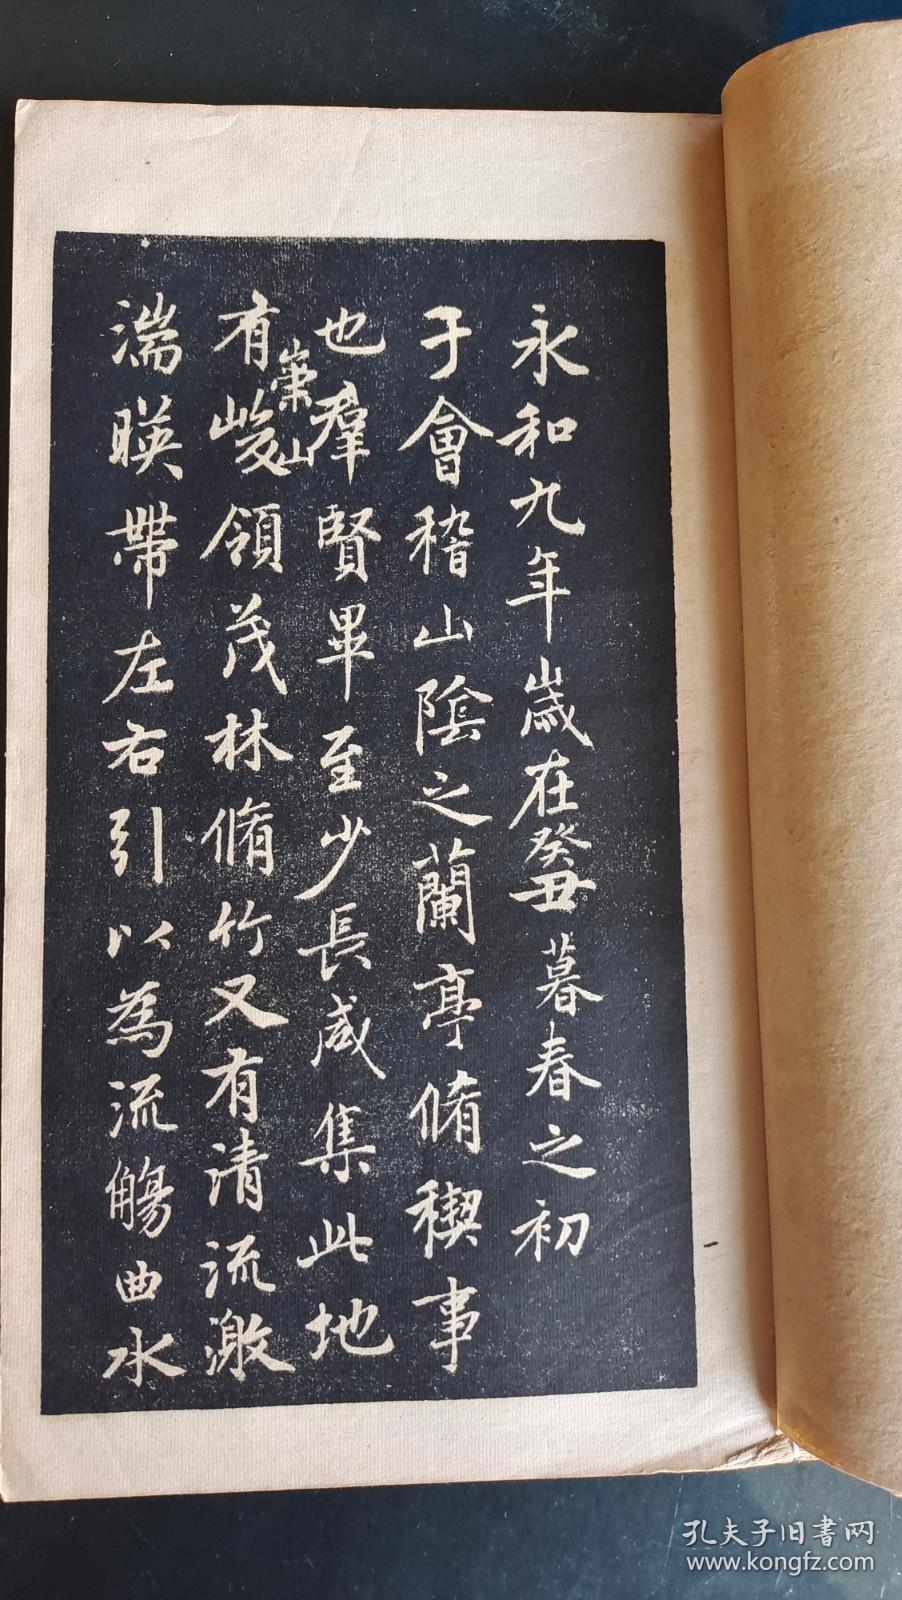 永和九年歲在癸丑暮春之初
于會稽山陰之蘭亭脩稧事
也羣賢畢至少長咸集此地
有崇山峻領茂林脩竹又有清流激
湍暎帶左右引以為流觴曲水
孔夫子旧书网
www.kongfz.com